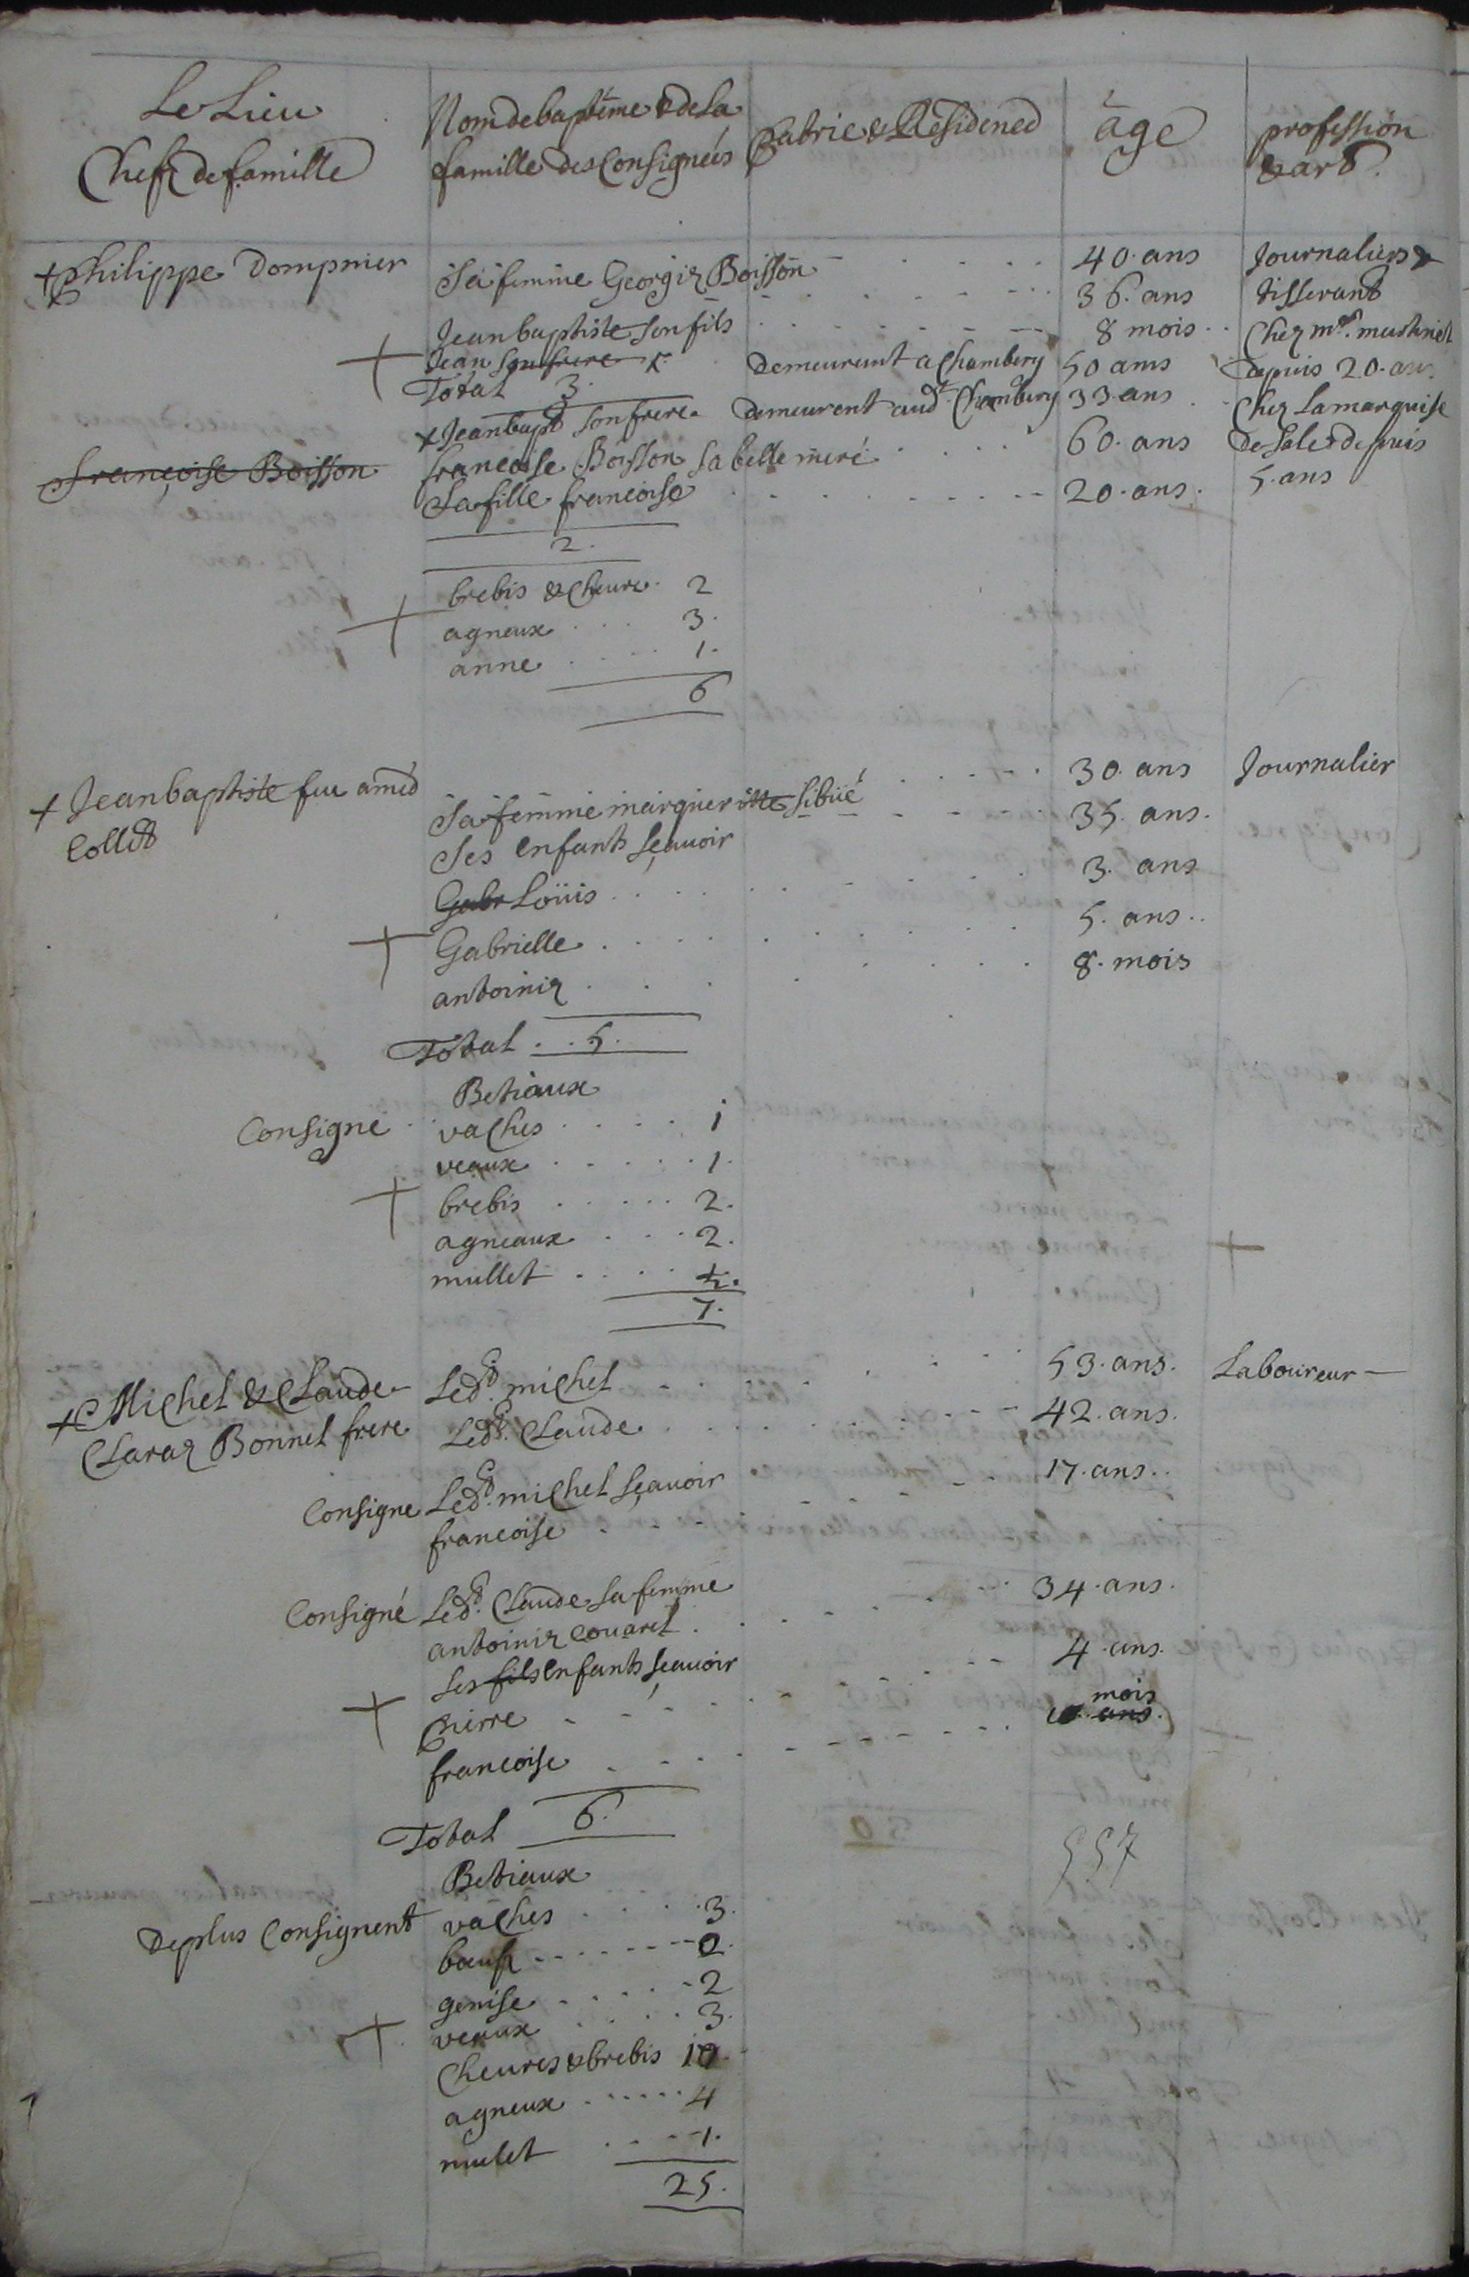 Le Lieu
Chefz de famille
Nom de baptême & de la
famille des Consignées
Patrie & Residence
âge
profession
& art
+ Philippe Dompnier 40. ans Journaliers &
sa femme Georgiz Boisson 36. ans tisserant
Jean baptiste son fils 8 mois
Jean son frere Demeurant a Chambery 50 ans Chez mr.
Total 3. depuis 20. ans
+ Jean bapt son frere Demeurent aud.t Chambery 33. ans Chez La marquise
françoise Boisson
francoise Boisson sa belle mere 60. ans De Sales depuis
Sa fille francoise 20. ans. 5. ans
2.
brebis & Cheure. 2
agneux 3.
anne 1.
6
+ Jean baptiste feu amed 30. ans Journalier
Collet
sa femme margueritte sibüé 35. ans.
Ses enfants sçauoir
Gabr Loüis 3. ans
Gabrielle 5. ans
antoiniz 8. mois
Total 5.
Betiaux
Consigne vaches 1
veaux 1.
brebis 2.
agneaux 2.
mullet 1.
7.
+ Michel & Claude Led.t michel 53. ans. Laboureur
Claraz Bonnel frere Led.t Claude 42. ans.
Consigne Led.t michel sçauoir 17. ans
francoise
Consigné Led.t Claude sa femme 34. ans.
antoiniz Couarel
Ses fils enfants sçauoir 4. ans.
Pierre mois
ans.
francoise
Total 6.
557
Betiaux
De plus Consignent vaches 3.
bœufz 2.
genise 2
veaux 3.
Cheures & brebis 10.
agneux 4
mulet 1.
25.